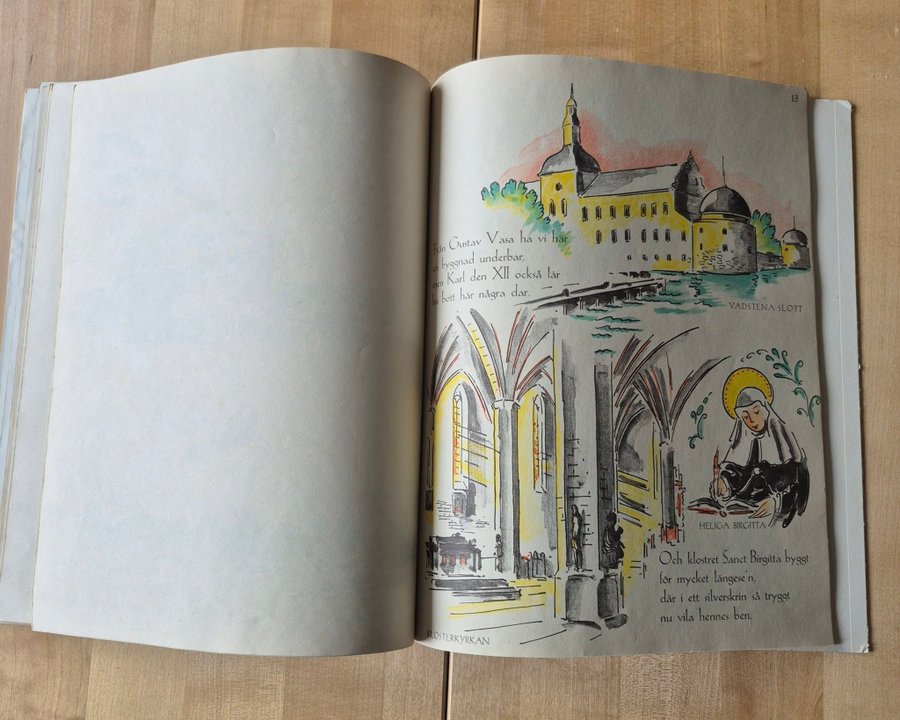 13
Från Gustav Vasa ha vi här
byggnad underbar,
men Karl den XII också lär
ha bott här några dar.
VADSTENA SLOTT
HELIGA BIRGITTA
Och klostret Sanct Birgitta byggt
för mycket längese'n,
där i ett silverskrin så tryggt
nu vila hennes ben.
KLOSTERKYRKAN